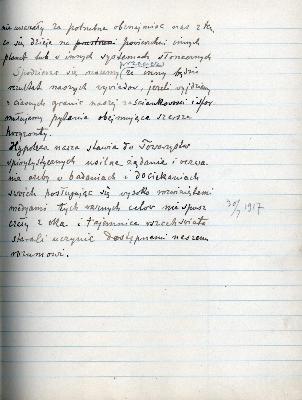 nie uważały za potrzebne obeznajmiać nas z tem,
co się dzieje na powierzchni innych
planet lub w innych systemach słonecznych
Spodziewać się mamy przecież, że inny będzie
rezultat naszych wywiadów, jeżeli wyjdziemy
z ciasnych granic naszej zaściankowości i sfor-
mułujemy pytania obejmujące szersze
horyzonty.
Hypoteza nasza stawia do Towarzystw
spirytystycznych usilne żądanie i wezwa-
nie ażeby w badaniach i dociekaniach
swoich posługując się wysoko rozwiniętemi
medyami tych ważnych celów nie spusz-
czały z oka i tajemnice wszechświata
starali uczynić dostępnemi naszemu
rozumowi.
30/7 1917